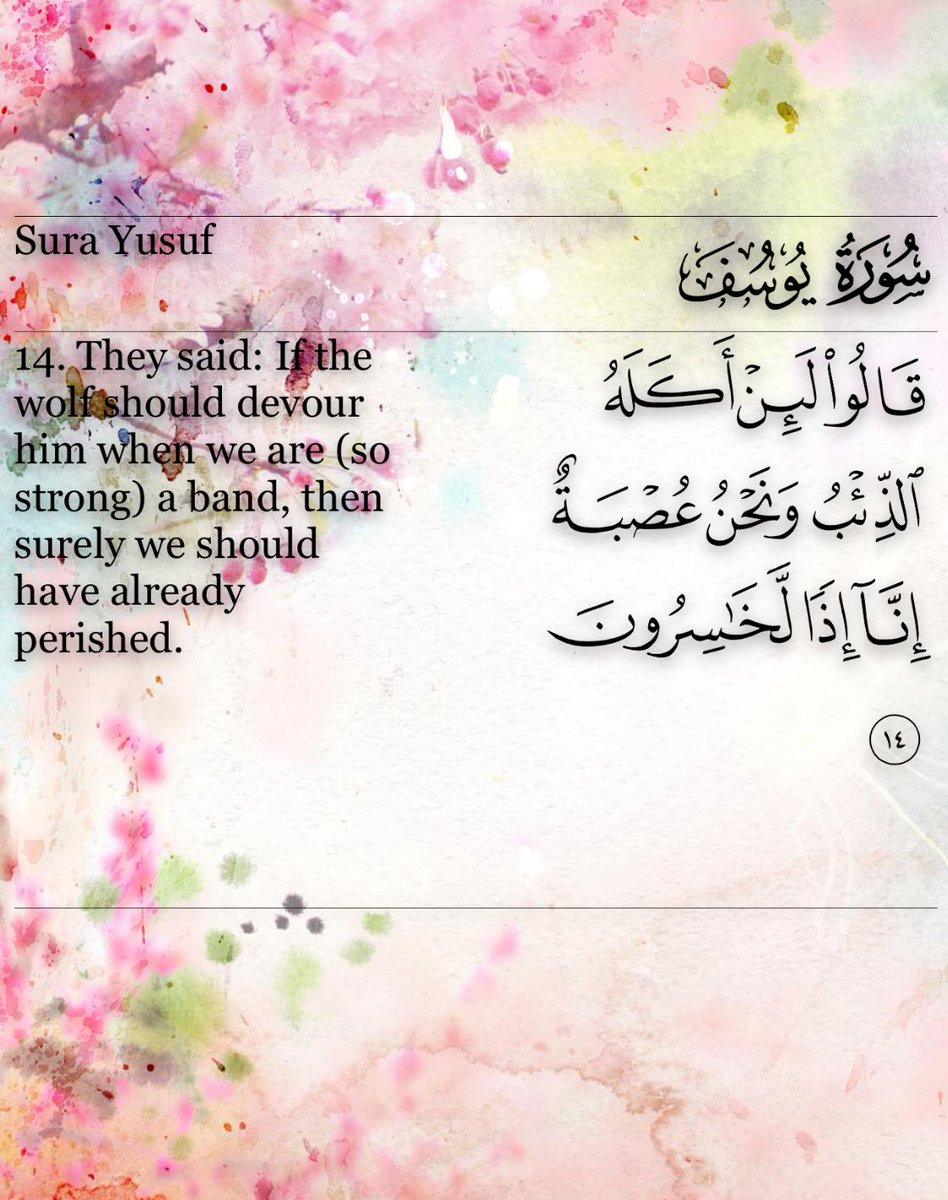 Sura Yusuf
سُورَةُ يُوسُفَ
14. They said: If the
wolf should devour
him when we are (so
strong) a band, then
surely we should
have already
perished.
قَالُوا۟ لَئِنْ أَكَلَهُ
ٱلذِّئْبُ وَنَحْنُ عُصْبَةٌ
إِنَّآ إِذًا لَّخَـٰسِرُونَ
١٤